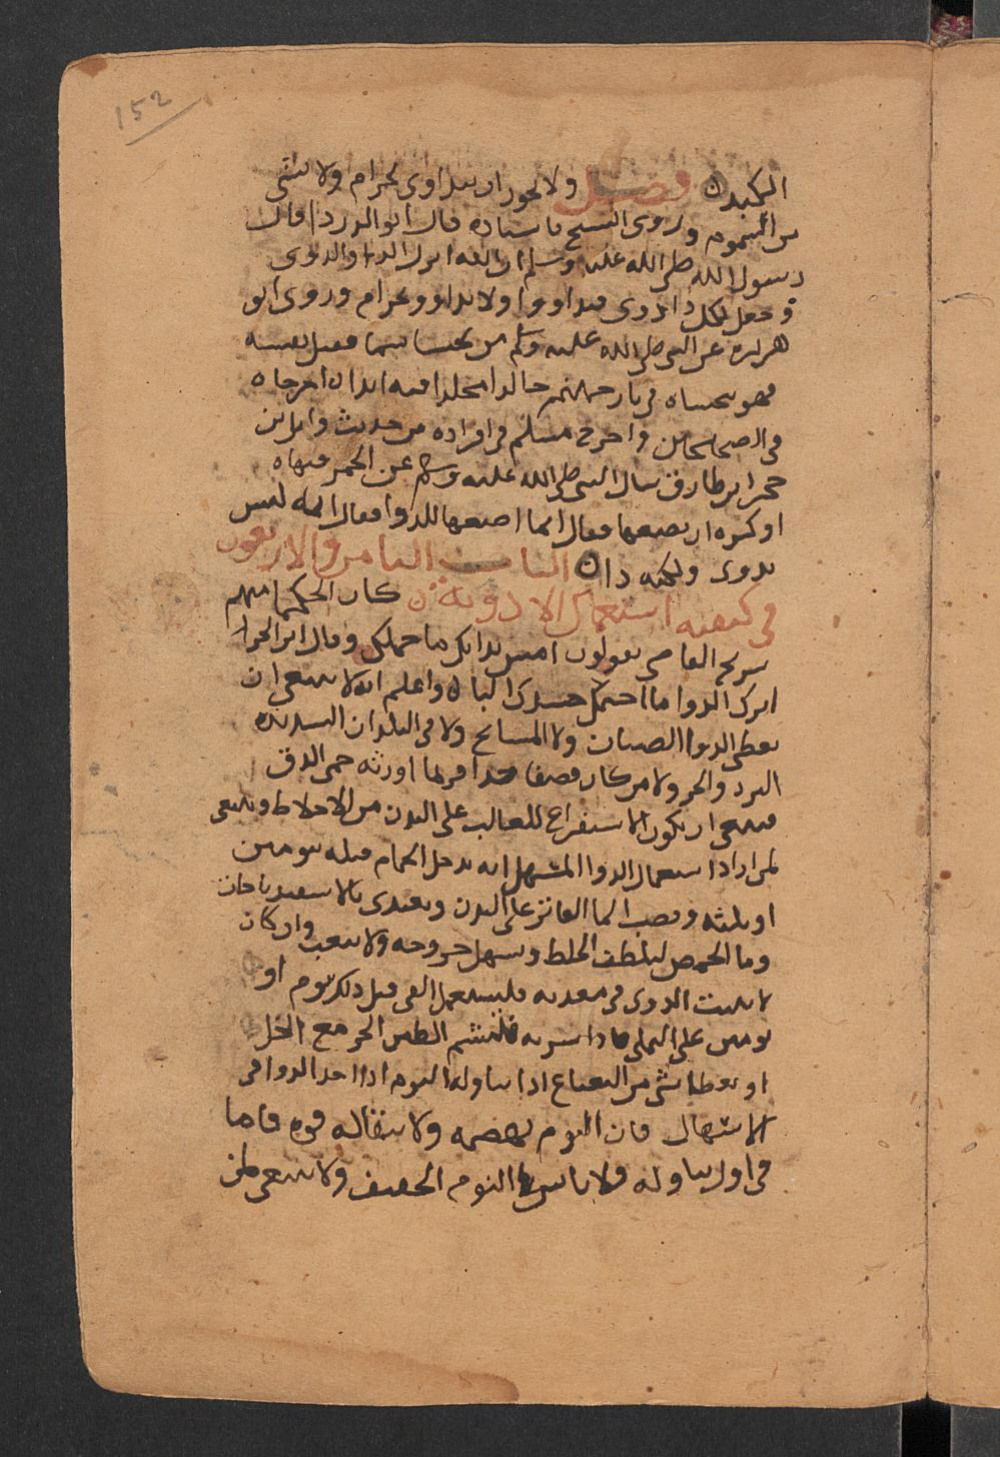 152
الكبد فصل ولا يجوز ان يتداوى بحرام ولا بشي
من السموم وروى الشيخ باسناده قال ابو الدرداء قال
رسول الله صلى الله عليه وسلم ان الله انزل الداء والدوى
وجعل لكل دا دوى فتداووا ولا تداووا بحرام وروى ابو
هريرة عن النبي صلى الله عليه وسلم من تحسا سما فقتل نفسه
فهو يتحساه في نار جهنم خالدا مخلدا فيه ابدا اخرجاه
في الصحيحين واخرج مسلم في افراده من حديث وايل بن
حجر ان طارق سال النبي صلى الله عليه وسلم عن الخمر فنهاه
او كره ان يصنعها فقال انما اصنعها للدوا فقال انه ليس
بدوى ولكنه دا الباب الثامن والاربعون
في كيفية استعمال الادوية كان الحكما منهم
شريح القاضي يقولون امش بدايك ما حملك وقال ابن الجوزا
اترك الدوا ما احتمل جسدك الداء واعلم انه لا ينبغي ان
يعطى الدوا الصبيان ولا المشايخ ولا في البلدان الشديدة
البرد والحر ولا من كان قضيفا جدا فربما اورثه حمى الدق
فينبغي ان يكون الاستفراغ للغالب على البدن من الاخلاط وينبغي
لمن اراد استعمال الدوا المسهل انه يدخل الحمام قبله بيومين
او ثلثه ويصب الما الفاتر على البدن ويغتدى بالاسفيدباجات
وما الحمص ليلطف الخلط ويسهل خروجه ولا يتعب وان كان
لا يثبت الدوى في معدته فليستعمل القى قبل ذلك بيوم او
يومين على التملي فاذا شربه فليشم الطين الحر مع الخل
او يعطا شي من النعناع اذا تناوله النوم اذا اخذ الدوا في
الاسهال فان النوم يهضمه ولا يبقا له قوة فاما
في اول تناوله فلا باس بالنوم الخفيف ولا ينبغي لمن